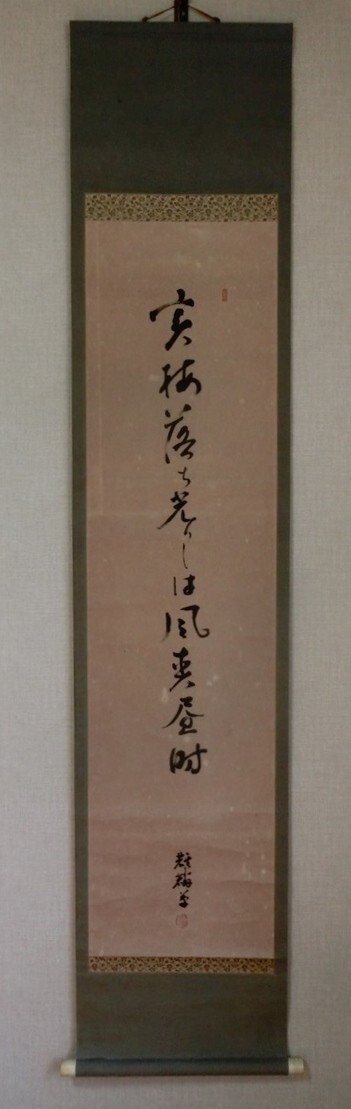 実梅落ち光りしは風爽昼時